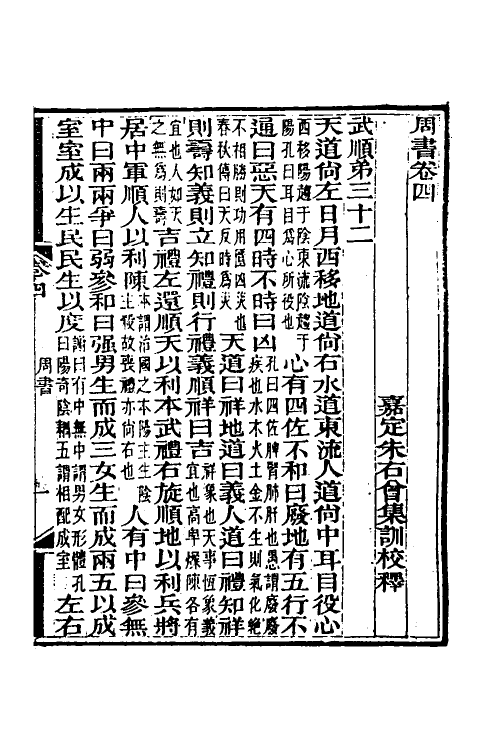 周書卷四
嘉定朱右曾集訓校釋
武順弟三十二
天道尙左日月西移地道尙右水道東流人道尙中耳目役心
西移陽趨于陰東流陰趨于陽孔曰耳目爲心所役也心有四佐不和曰廢地有五行不
通曰惡天有四時不時曰凶孔曰四佐脾腎肺肝也愚謂廢廢疾也水木火土金不生則氣化絶
不相勝則功用匱凶災也春秋傳曰天反時爲災天道曰祥地道曰義人道曰禮知祥
則壽知義則立知禮則行禮義順祥曰吉祥象也天事恆象義宜也高卑燥陳各有
宜也人如天之無爲則壽吉禮左還順天以利本武禮右旋順地以利兵將
居中軍順人以利陳本謂治國之本陽主生陰主殺故喪禮亦尙右也人有中曰參無
中曰兩兩爭曰弱參和曰强男生而成三女生而成兩五以成
室室成以生民民生以度謝曰有中無中謂男女形體孔曰陽奇陰耦五謂相配成室左右
卷四
周書
一